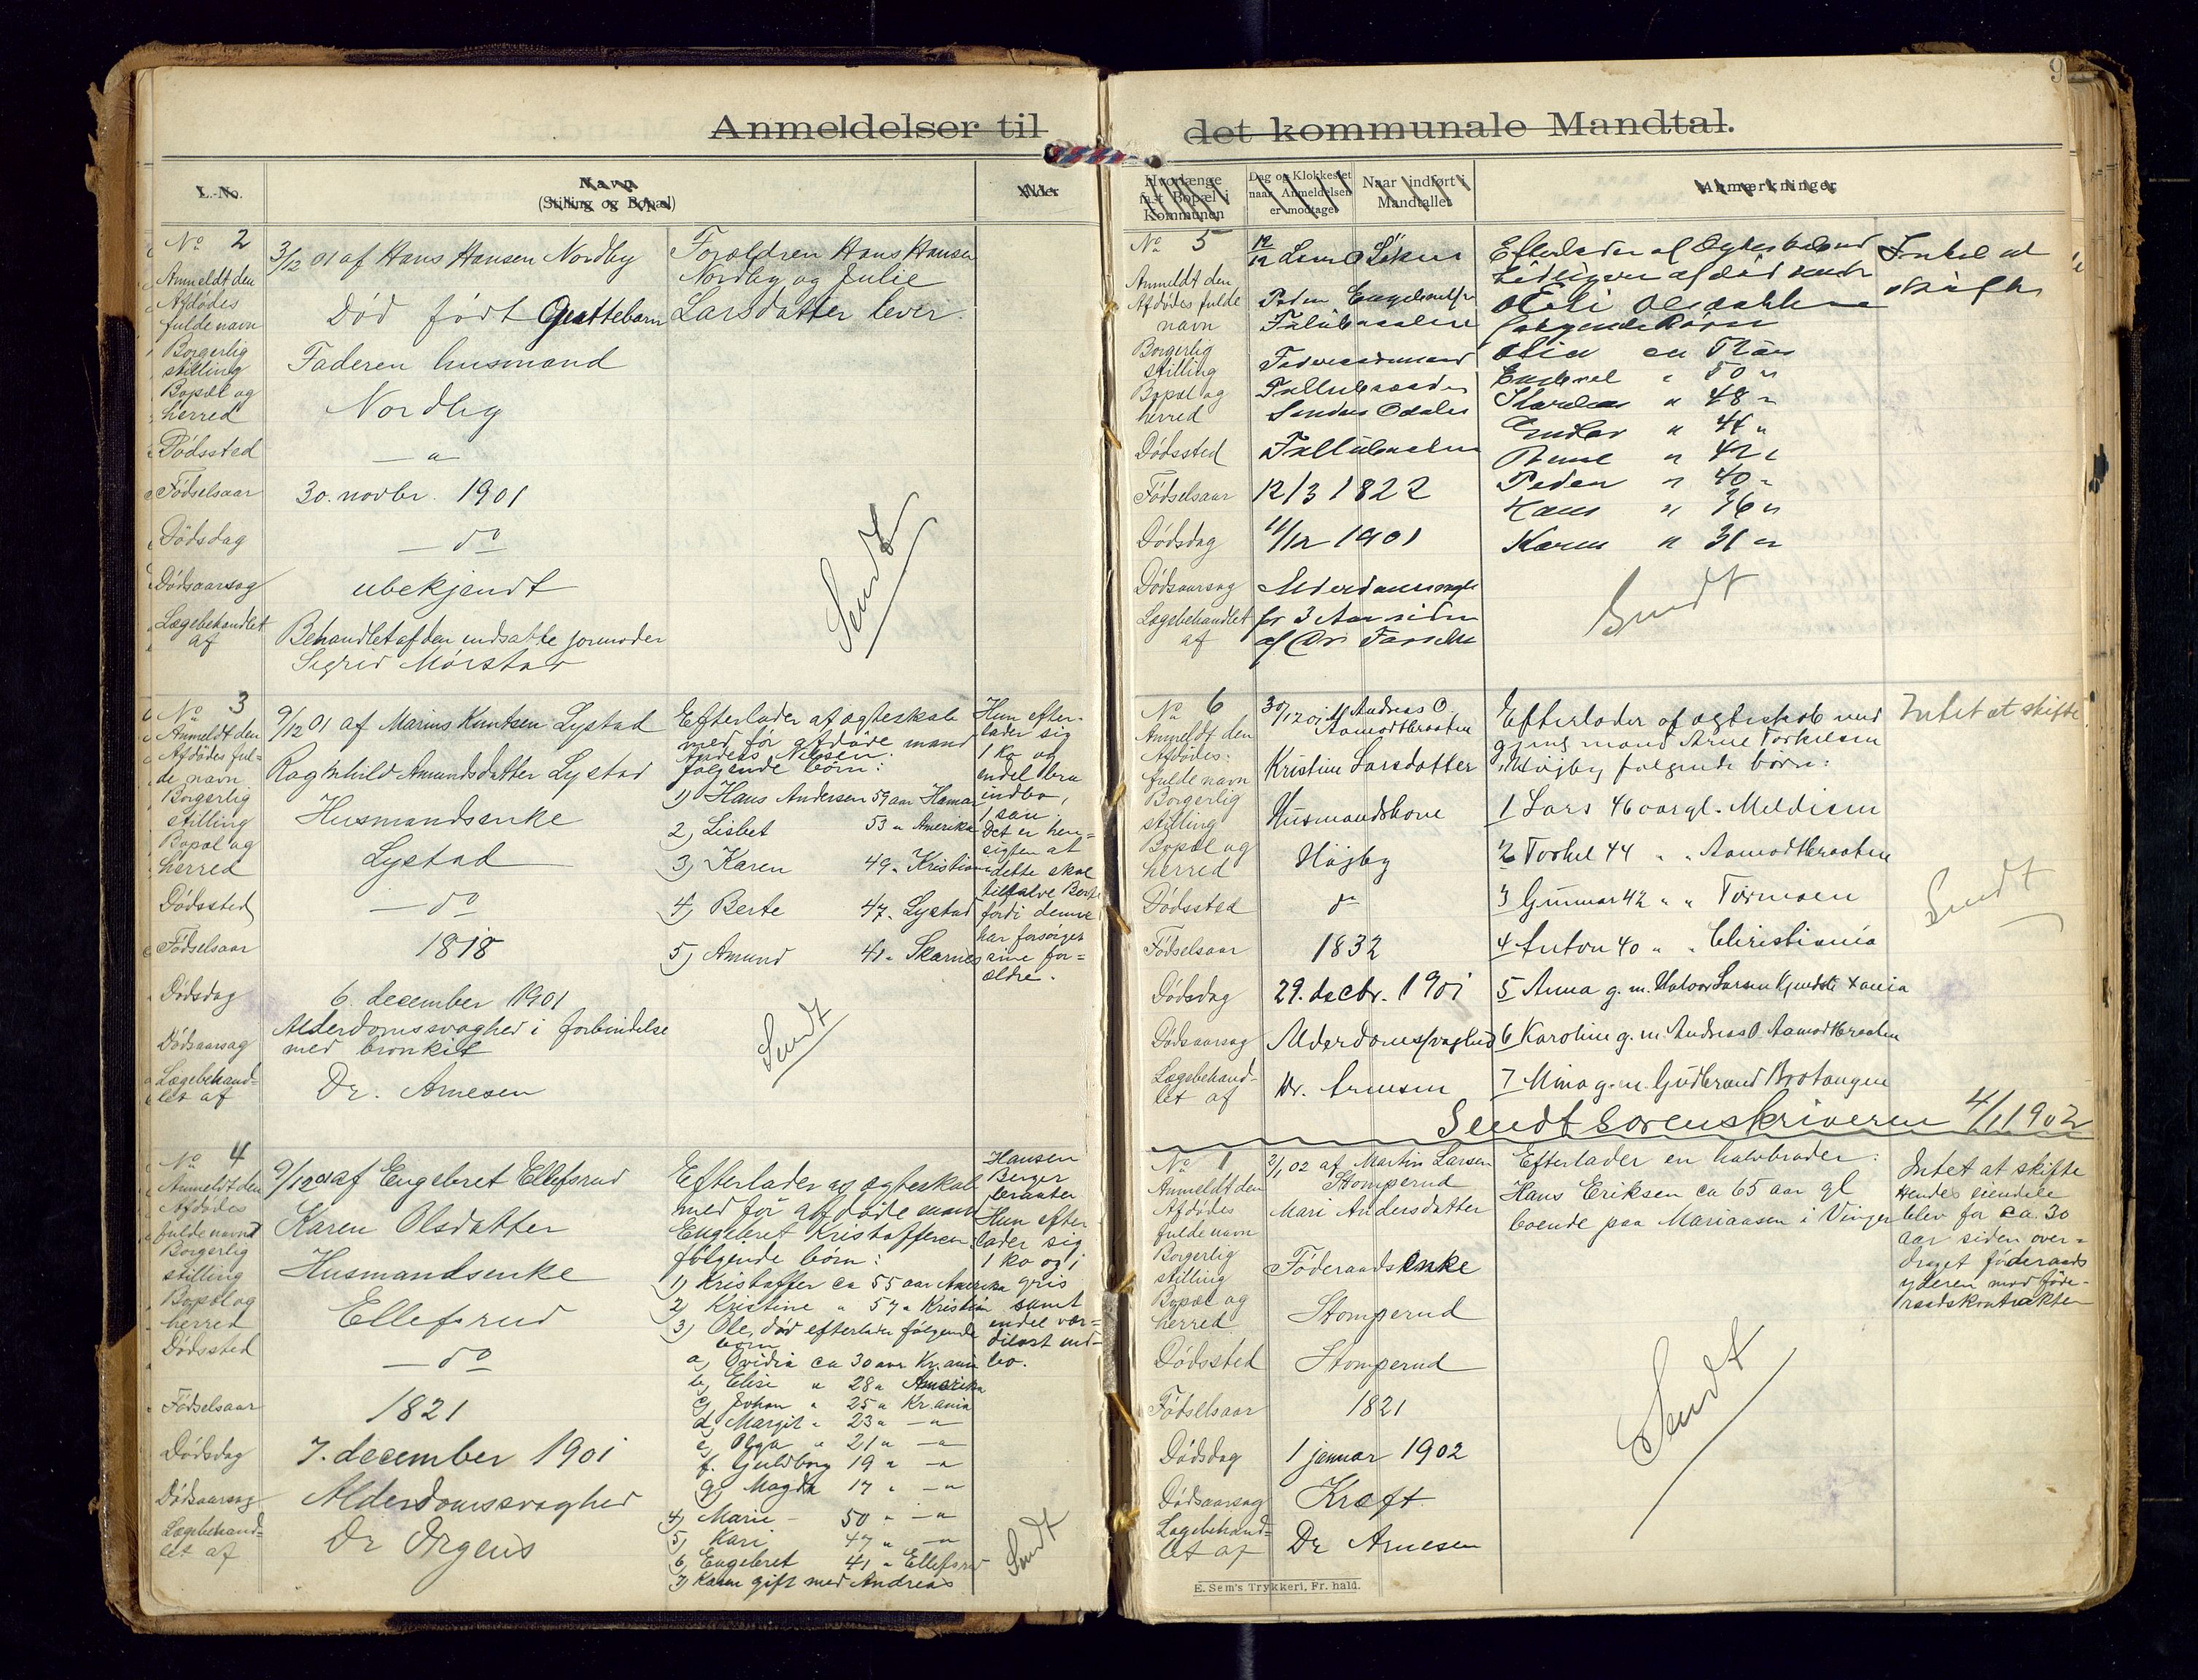 Anmeldelser til
L.-No.
Navn
(Stilling og Bopæl)
Alder
No 2
Anmeldt den
Afdødes
fulde navn
Borgerlig
stilling
Bopæl og
herred
Dødssted
Fødselsaar
Dødsdag
Dødsaarsag
Lægebehandlet
af
3/12 01 af Hans Hansen Nordby
Død født Guttebarn
Faderen husmand
Nordby
— " —
30. novbr. 1901
— do
ubekjendt
Behandlet af den indsatte jormoder
Sigrid Mørstad
Forældren Hans Hansen
Nordby og Julie
Larsdatter lever.
Sendt
No 3
Anmeldt den
Afdødes ful-
de navn
Borgerlig
stilling
Bopæl og
herred
Dødssted
Fødselsaar
Dødsdag
Dødsaarsag
Lægebehand-
let af
9/12 01 af Marius Knutsen Lystad
Ragnhild Amundsdatter Lystad
Husmandsenke
Lystad
— do
1818
6. december 1901
Alderdomssvaghed i forbindelse
med bronkit
Dr. Arnesen
Efterlader af ægteskab
med før afdøde mand
Anders Nilsen
følgende børn:
1) Hans Andersen 59 aar Hamar
2) Lisbet 53 " Amerika
3) Karen 49 " Kristiania
4) Berte 47 " Lystad
5) Amund 41 " Skarnes
Sendt
Hun efter-
lader sig
1 Ko og
endel bra
indbo,
1 sau
Det er hen-
sigten at
dette skal
tilfalde Berte
fordi denne
har forsørget
sine for-
ældre.
No 4
Anmeldt den
Afdødes
fulde navn
Borgerlig
stilling
Bopæl og
herred
Dødssted
Fødselsaar
Dødsdag
Dødsaarsag
Lægebehand-
let af
9/12 01 af Engebret Ellefsrud
Karen Olsdatter
Husmandsenke
Ellefsrud
— do
1821
7. december 1901
Alderdomssvaghed
Dr Ørgens
Efterlader af ægteskab
med før afdøde mand
Engebret Kristoffersen
følgende børn:
1) Kristoffer ca 55 aar Amerika
2) Kristine " 57 " Kristian
3) Ole, død efterlader følgende
børn
a) Ovidia ca 30 aar Kr.ania
b) Elise " 28 " Amerika
c) Johan " 25 " Kr.ania
d) Margit " 23 " — " —
e) Olga " 21 " — " —
f. Guldborg 19 " — " —
g) Magda 17 " — " —
4) Marie - 50 " — " —
5) Kari 47 " — " —
6) Engebret 41 " Ellefsrud
7) Karen gift med Andreas
Hansen
Berger
braaten
Hun efter
lader sig
1 ko og 1
gris
samt
endel vær-
diløst ind-
bo.
Sendt
9
det kommunale Mandtal.
Hvorlænge
fast Bopæl i
Kommunen
Dag og Klokkeslet
naar Anmeldelsen
er modtaget
Naar indført i
Mandtallet
Anmærkninger
No 5
Anmeldt den
Afdødes fulde
navn
Borgerlig
stilling
Bopæl og
herred
Dødssted
Fødselsaar
Dødsdag
Dødsaarsag
Lægebehandlet
af
12/12
Peder
Søndre Odalen
12/3 1822
11/12 1901
for 3 Aar siden
Efterlader af Ægteskab med
følgende Børn
50 "
" 48 "
" 42 "
Peder " 40 "
Hans " 36 "
Karen " 31 "
Intet at
skifte
Sendt
No 6
Anmeldt den
Afdødes:
fulde navn
Borgerlig
stilling
Bopæl og
herred
Dødssted
Fødselsaar
Dødsdag
Dødsaarsag
Lægebehand-
let af
30/12 01 af Andreas O.
Aamodtbraaten
Kristine Larsdatter
Husmandskone
Højby
do
1832
29. decbr. 1901
Alderdomssvaghed
Dr. Arnesen
Efterlader af ægteskab med
gjenl. mand Arne Torkelsen
Højby følgende børn:
1 Lars 46 aar gl. Meldisen
2 Torkel 44 " " Aamodtbraaten
3 Gunnar 42 " " Tormoen
4 Anton 40 " " Christiania
5 Anna g. m. Halvor Larsen Xania
6 Karoline g. m. Andreas O. Aamodtbraaten
7 Mina g. m. Gudbrand Brotangen
Intet at skifte
Sendt
Sendt sorenskriveren 4/1 1902
No 1
Anmeldt den
Afdødes
fulde navn
Borgerlig
stilling
Bopæl og
herred
Dødssted
Fødselsaar
Dødsdag
Dødsaarsag
Lægebehand-
let af
3/1 02 af Martin Larsen
Stomperud
Mari Andersdatter
Føderaadsenke
Stomperud
Stomperud
1821
1 januar 1902
Kræft
Dr Arnesen
Efterlader en halvbroder:
Hans Eriksen ca 65 aar gl
boende paa Mariaasen i Vinger
Intet at skifte
Hendes eiendele
blev for ca. 30
aar siden over-
draget føderaads
yderen mod føde-
raadskontrakten
Sendt
E. Sem's Trykkeri, Fr. hald.